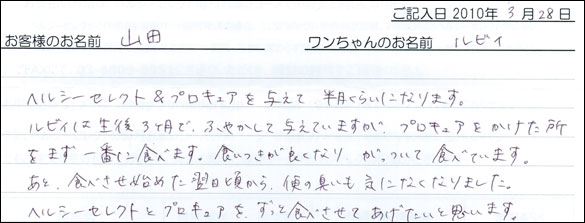 ご記入日 2010年 3月 28日
お客様のお名前 山田 ワンちゃんのお名前 ルビィ
ヘルシーセレクト&プロキュアを与えて 半月くらいになります。
ルビィは生後3ヶ月で、ふやかして与えていますが プロキュアをかけた所
をまず一番に食べます。食いつきが良くなり がっついて食べています。
あと、食べさせ始めた翌日頃から、便の臭いも気になくなりました。
ヘルシーセレクトとプロキュアを、ずっと食べさせてあげたいと思います。